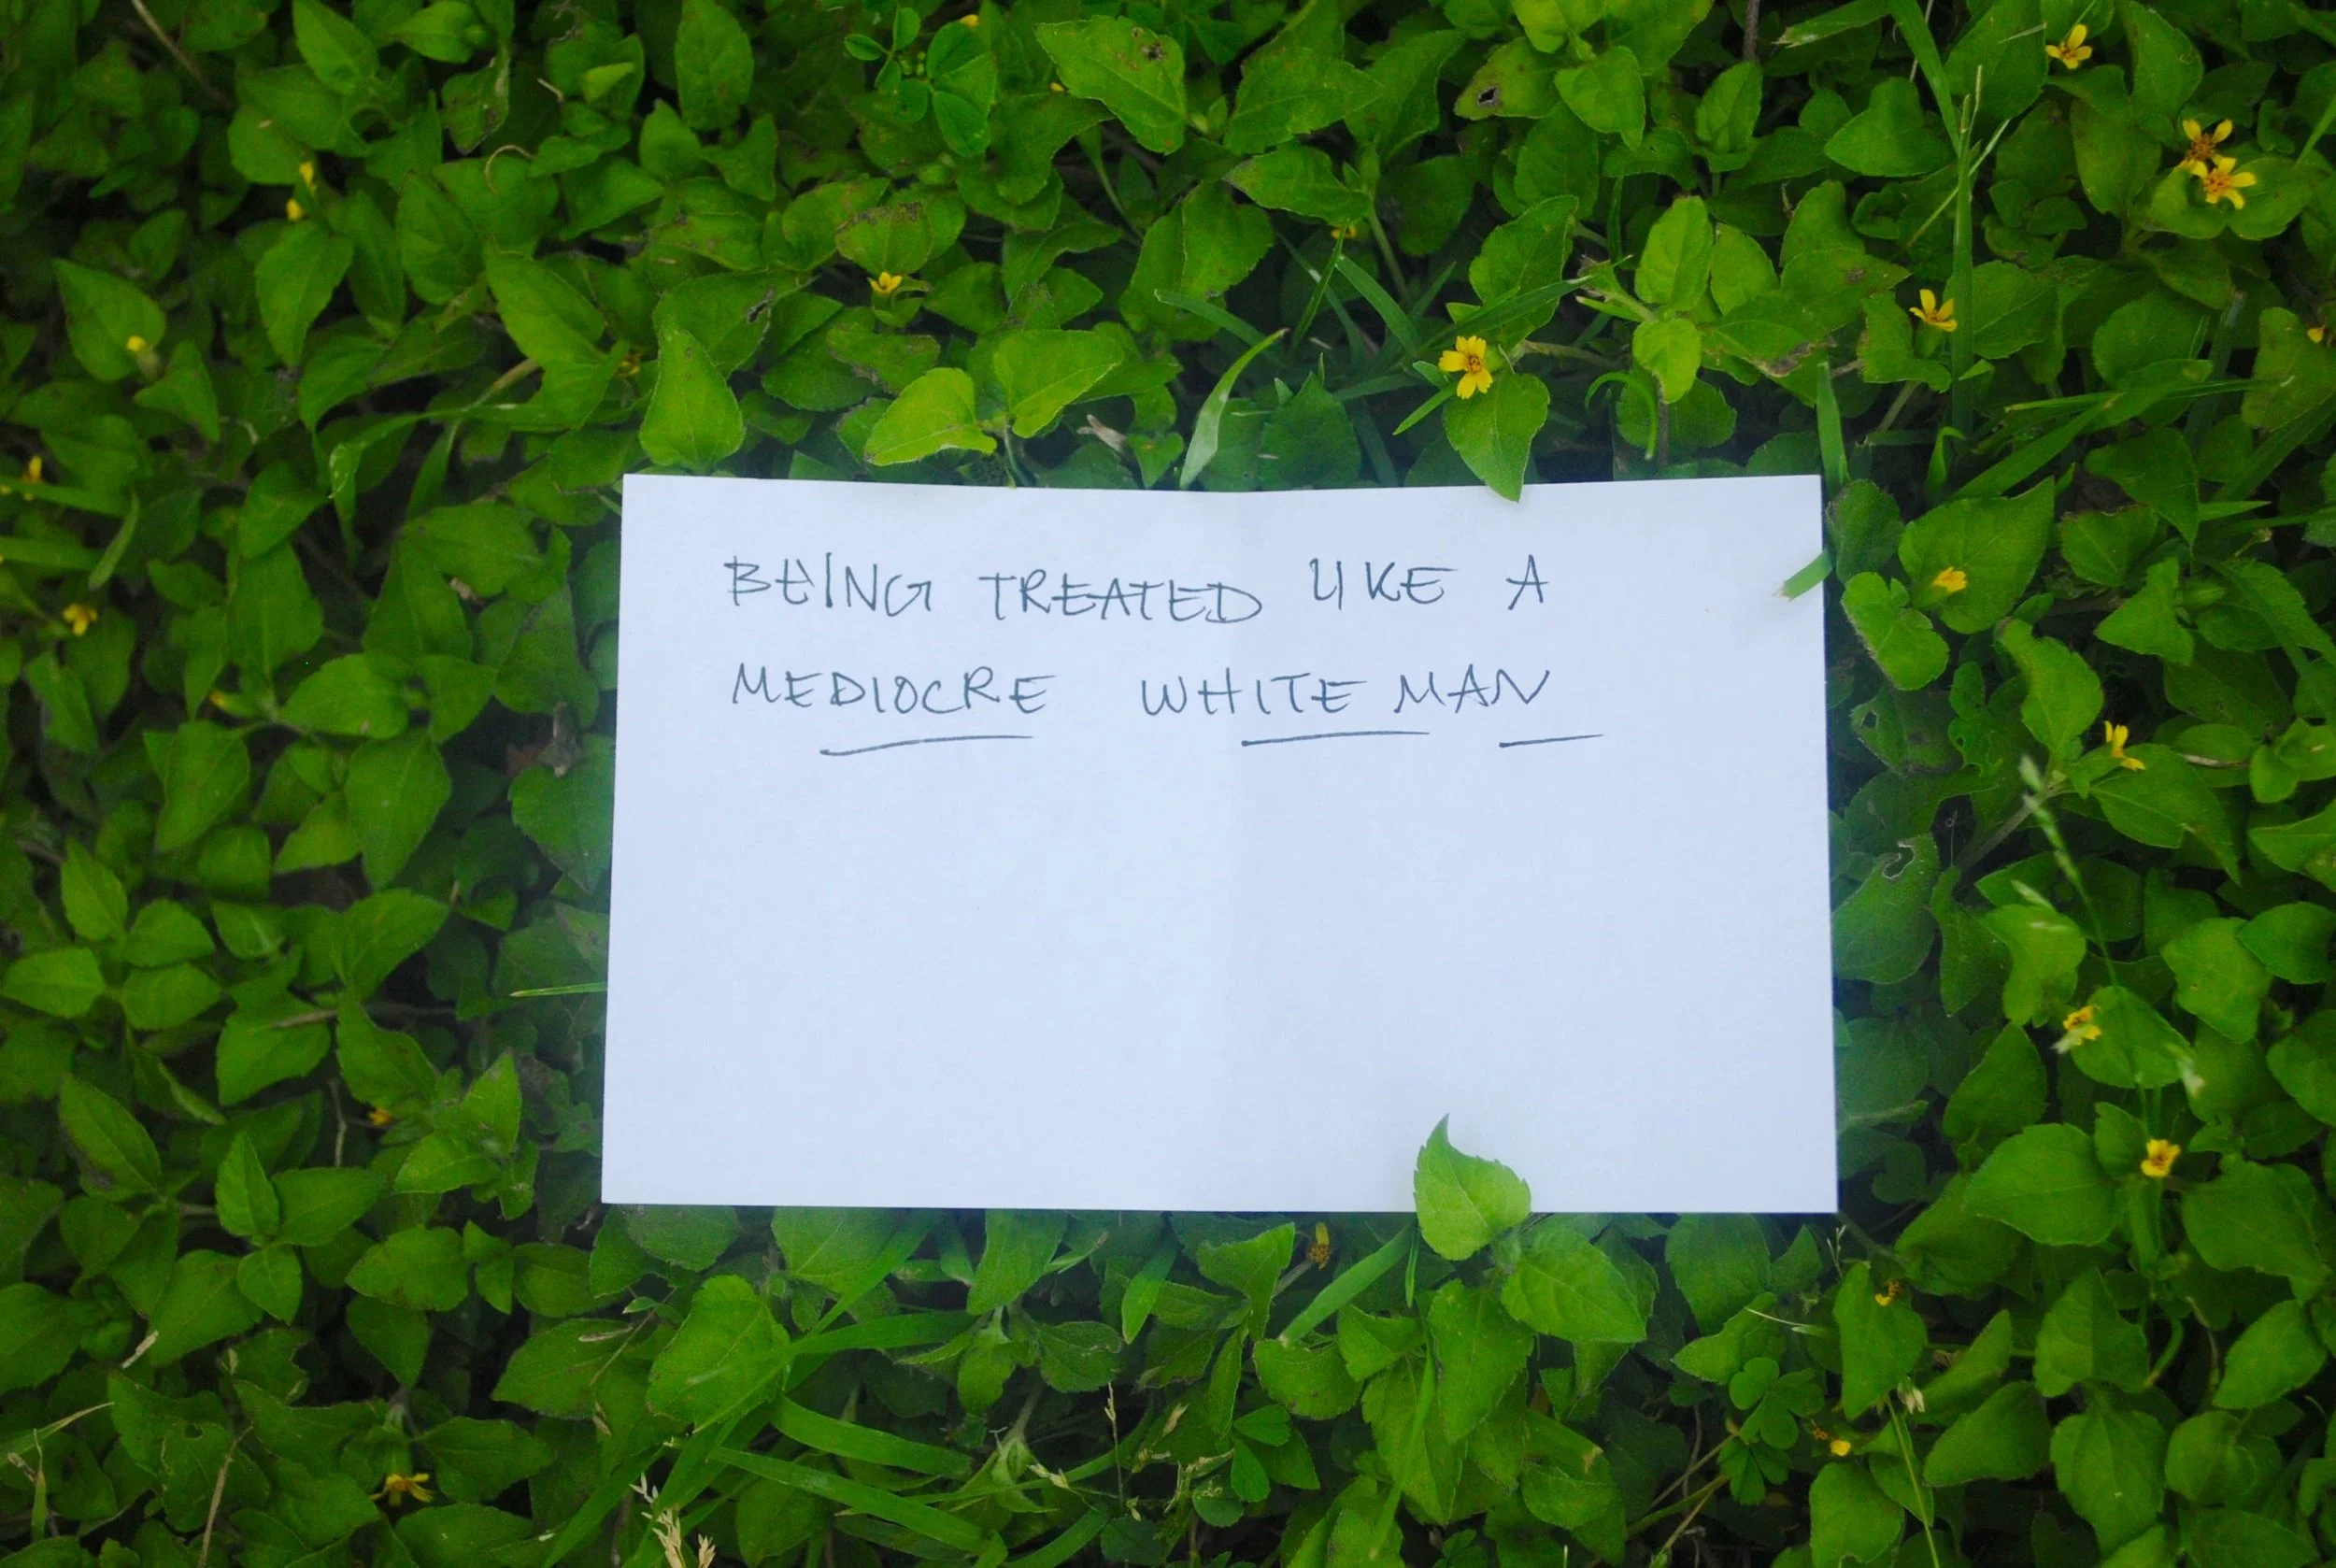 BEING TREATED LIKE A
MEDIOCRE WHITE MAN